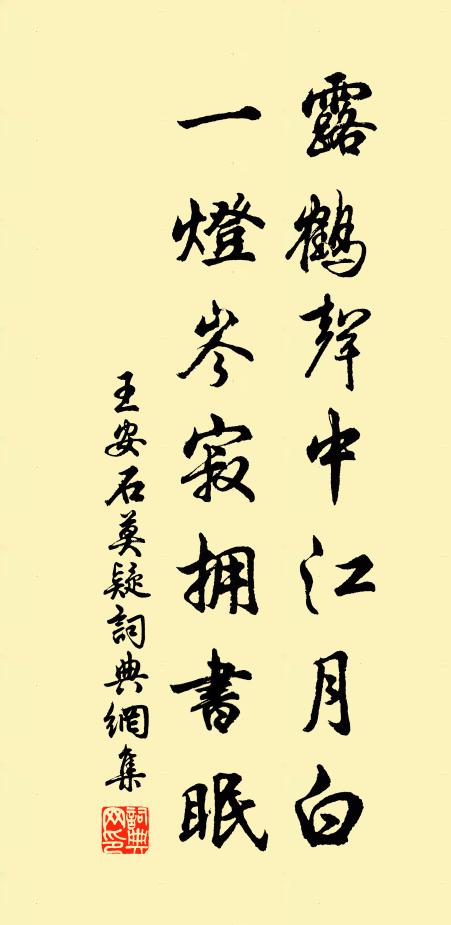 露鶴聲中江月白
一燈岑寂擁書眠
王安石莫疑詞典網集
詞典網印